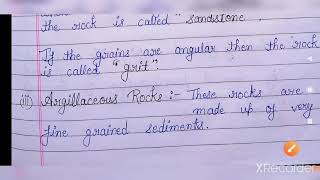 the rock is called "sandstone".
If the grains are angular then the rock
is called "grit".
iii) Argillaceous Rocks :- These rocks are
made up of very
fine grained sediments.
XRecorder